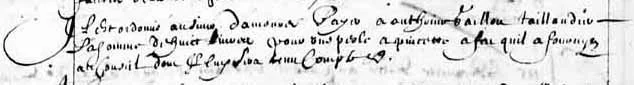 Il est ordonné au sieur d'amours payer a anthoine Caillou taillandier
La somme de huict livres pour une pesle a pincette a feu quil a fourny
au Conseil dont Il luy sera tenu Compte